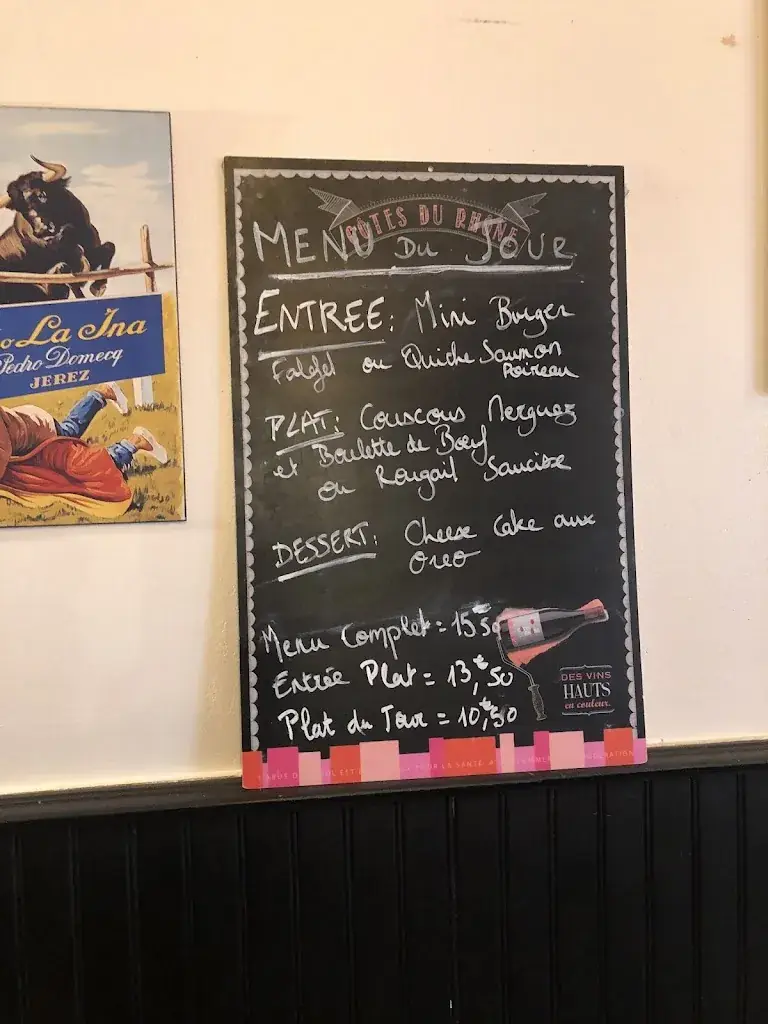 o La Ina
Pedro Domecq
JEREZ
CÔTES DU RHÔNE
MENU DU JOUR
ENTREE: Mini Burger
Falafel ou Quiche Saumon
Poireau
PLAT: Couscous Merguez
et Boulette de Bœuf
ou Rougail Saucisse
DESSERT: Cheese Cake aux
Oreo
Menu Complet = 15,50
Entrée Plat = 13,€50
Plat du Jour = 10,€50
DES VINS
HAUTS
en couleur.
POUR LA SANTÉ. À